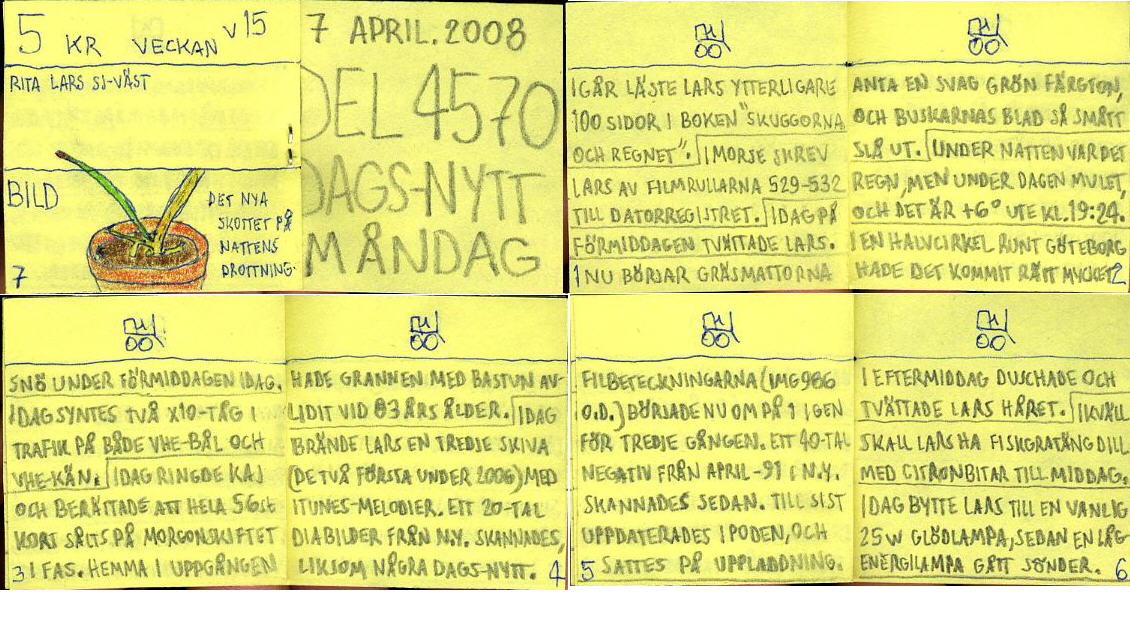 5 KR VECKAN V15
RITA LARS SJ-VÄST
BILD
DET NYA
SKOTTET PÅ
NATTENS
DROTTNING.
7
7 APRIL. 2008
DEL 4570
DAGS-NYTT
MÅNDAG
IGÅR LÄSTE LARS YTTERLIGARE
100 SIDOR I BOKEN "SKUGGORNA
OCH REGNET". I MORSE SKREV
LARS AV FILMRULLARNA 529-532
TILL DATORREGISTRET. IDAG PÅ
FÖRMIDDAGEN TVÄTTADE LARS.
1 NU BÖRJAR GRÄSMATTORNA
ANTA EN SVAG GRÖN FÄRGTON,
OCH BUSKARNAS BLAD SÅ SMÅTT
SLÅ UT. UNDER NATTEN VAR DET
REGN, MEN UNDER DAGEN MULET,
OCH DET ÄR +6° UTE KL.19:24.
I EN HALVCIRKEL RUNT GÖTEBORG
HADE DET KOMMIT RÄTT MYCKET 2
SNÖ UNDER FÖRMIDDAGEN IDAG.
IDAG SYNTES TVÅ X10-TÅG I
TRAFIK PÅ BÅDE VHE-BÅL OCH
VHE-KÄN. IDAG RINGDE KAJ
OCH BERÄTTADE ATT HELA 56st
KORT SÅLTS PÅ MORGONSKIFTET
3 I FAS. HEMMA I UPPGÅNGEN
HADE GRANNEN MED BASTUN AV-
LIDIT VID 83 ÅRS ÅLDER. IDAG
BRÄNDE LARS EN TREDJE SKIVA
(DE TVÅ FÖRSTA UNDER 2006) MED
ITUNES-MELODIER. ETT 20-TAL
DIABILDER FRÅN N.Y. SKANNADES,
LIKSOM NÅGRA DAGS-NYTT. 4
FILBETECKNINGARNA (IMG986
O.D.) BÖRJADE NU OM PÅ 1 IGEN
FÖR TREDJE GÅNGEN. ETT 40-TAL
NEGATIV FRÅN APRIL -91 I N.Y.
SKANNADES SEDAN. TILL SIST
UPPDATERADES IPODEN, OCH
5 SATTES PÅ UPPLADDNING.
I EFTERMIDDAG DUSCHADE OCH
TVÄTTADE LARS HÅRET. IKVÄLL
SKALL LARS HA FISKGRATÄNG DILL
MED CITRONBITAR TILL MIDDAG.
IDAG BYTTE LARS TILL EN VANLIG
25W GLÖDLAMPA, SEDAN EN LÅG-
ENERGILAMPA GÅTT SÖNDER. 6